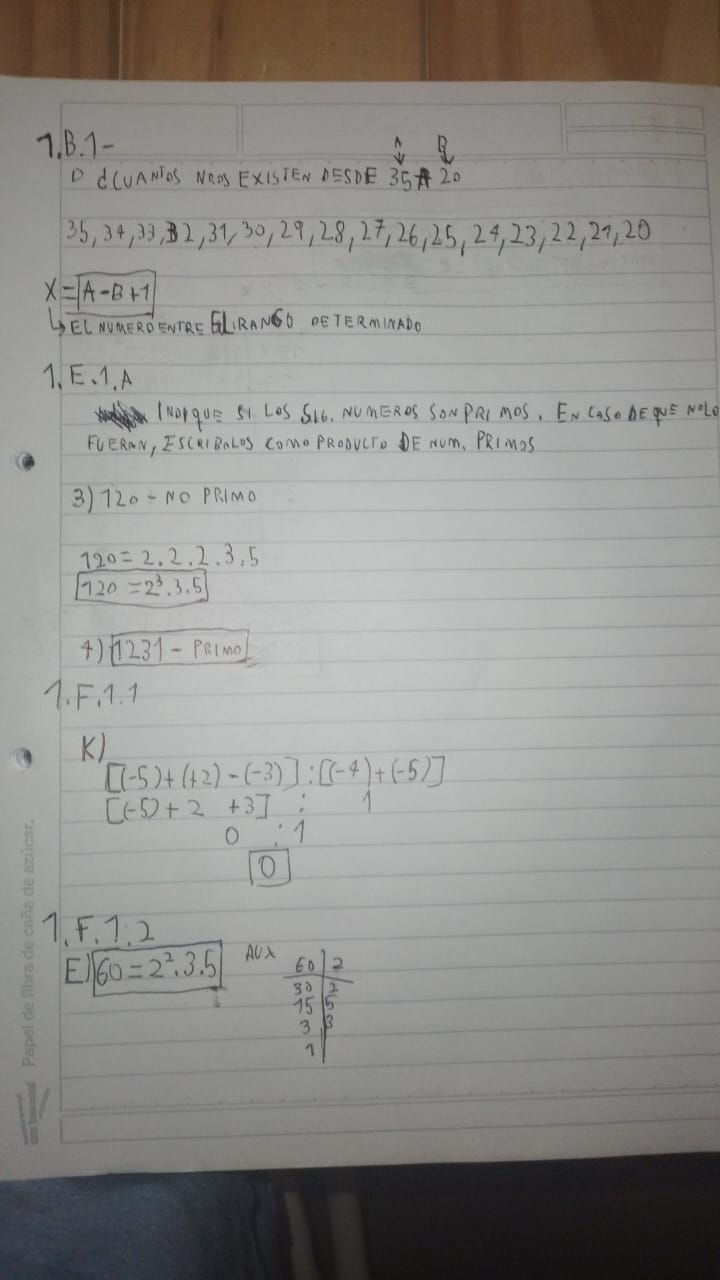 1.B.1-
A B
D ¿CUANTOS NROS EXISTEN DESDE 35 A 20
35, 34, 33, 32, 31, 30, 29, 28, 27, 26, 25, 24, 23, 22, 21, 20
X = A-B+1
↳ EL NUMERO ENTRE EL RANGO DETERMINADO
1.E.1.A
INDIQUE SI LOS SIG. NUMEROS SON PRIMOS. EN CASO DE QUE NO LO
FUERAN, ESCRIBALOS COMO PRODUCTO DE NUM. PRIMOS
3) 120 - NO PRIMO
120 = 2.2.2.3.5
120 = 2³.3.5
4) 1231 - PRIMO
1.F.1.1
K)
[(-5)+(+2)-(-3)]:[(-4)+(-5)]
[(-5)+2 +3] : 1
0 : 1
0
1.F.1.2
E) 60 = 2².3.5 AUX 60 2
30 2
15 5
3 3
1
Papel de fibra de caña de azúcar.